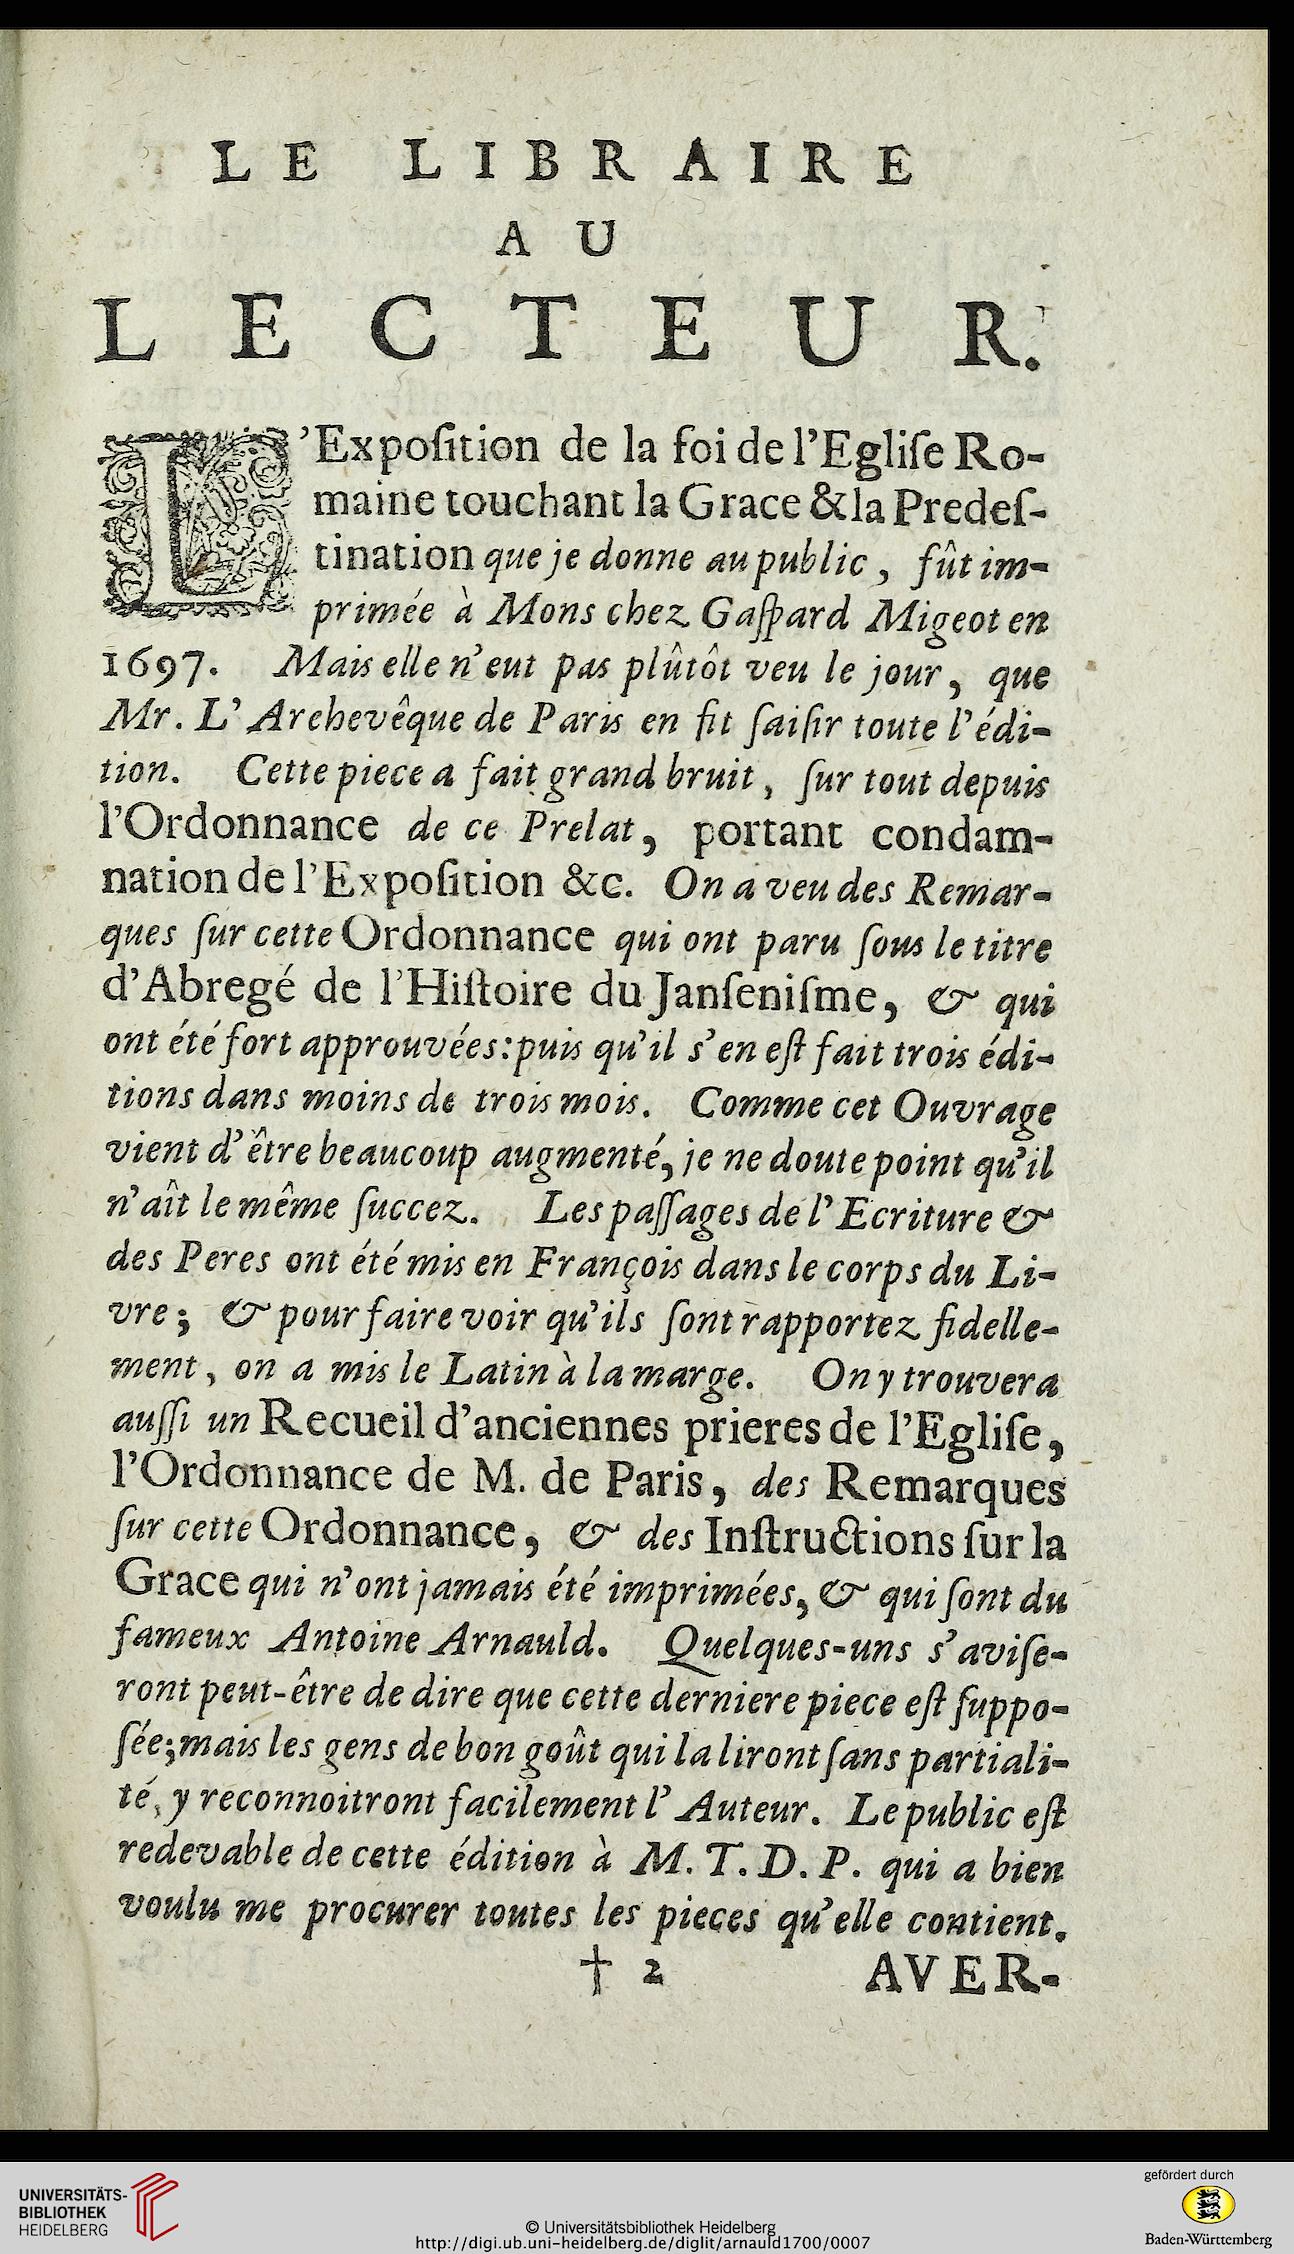 LE LIBRAIRE
AU
LECTEUR.
L'Expoſition de la foi de l'Egliſe Ro-
maine touchant la Grace & la Predeſ-
tination que je donne au public, fût im-
primée à Mons chez Gaſpard Migeot en
1697. Mais elle n'eut pas plûtôt veu le jour, que
Mr. L'Archevêque de Paris en fit ſaiſir toute l'édi-
tion. Cette piece a fait grand bruit, ſur tout depuis
l'Ordonnance de ce Prelat, portant condam-
nation de l'Expoſition &c. On a veu des Remar-
ques ſur cette Ordonnance qui ont paru ſous le titre
d'Abregé de l'Hiſtoire du Janſeniſme, & qui
ont été fort approuvées: puis qu'il s'en eſt fait trois édi-
tions dans moins de trois mois. Comme cet Ouvrage
vient d'être beaucoup augmenté, je ne doute point qu'il
n'aît le même ſuccez. Les paſſages de l'Ecriture &
des Peres ont été mis en François dans le corps du Li-
vre; & pour faire voir qu'ils ſont rapportez fidelle-
ment, on a mis le Latin à la marge. On y trouvera
auſſi un Recueil d'anciennes prieres de l'Egliſe,
l'Ordonnance de M. de Paris, des Remarques
ſur cette Ordonnance, & des Inſtructions ſur la
Grace qui n'ont jamais été imprimées, & qui ſont du
fameux Antoine Arnauld. Quelques-uns s'aviſe-
ront peut-être de dire que cette derniere piece eſt ſuppo-
ſée; mais les gens de bon goût qui la liront ſans partiali-
té, y reconnoitront facilement l'Auteur. Le public eſt
redevable de cette édition à M. T. D. P. qui a bien
voulu me procurer toutes les pieces qu'elle contient.
† 2 AVER-
UNIVERSITÄTS-
BIBLIOTHEK
HEIDELBERG
© Universitätsbibliothek Heidelberg
http://digi.ub.uni-heidelberg.de/diglit/arnauld1700/0007
gefördert durch
Baden-Württemberg